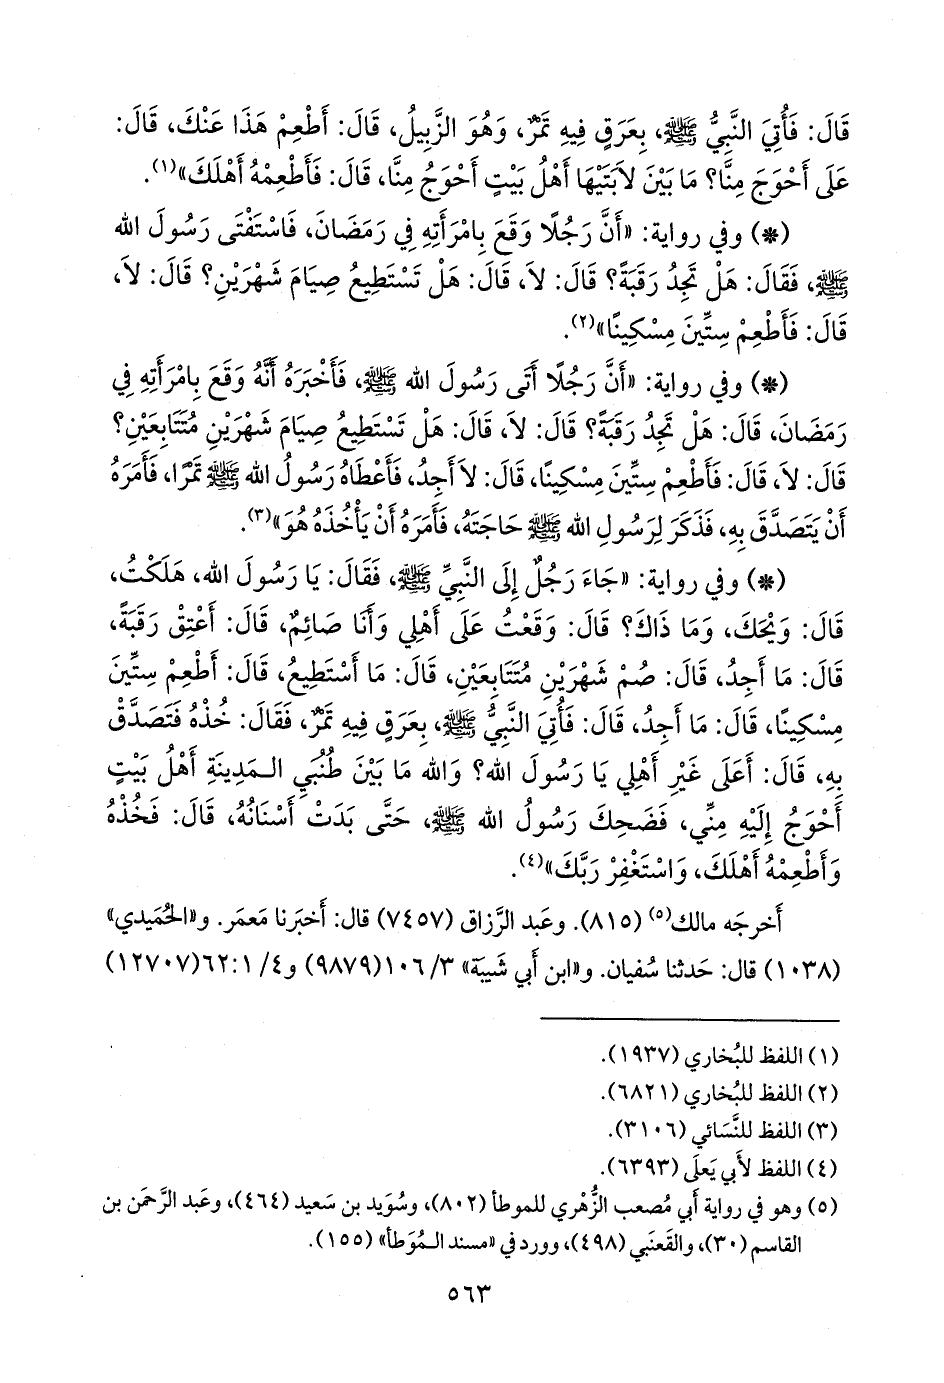 قَالَ: فَأُتِيَ النَّبِيُّ ﷺ، بِعَرَقٍ فِيهِ تَمْرٌ، وَهُوَ الزَّبِيلُ، قَالَ: أَطْعِمْ هَذَا عَنْكَ، قَالَ:
عَلَى أَحْوَجَ مِنَّا؟ مَا بَيْنَ لاَبَتَيْهَا أَهْلُ بَيْتٍ أَحْوَجُ مِنَّا، قَالَ: فَأَطْعِمْهُ أَهْلَكَ»(١).
(*) وفي رواية: «أَنَّ رَجُلًا وَقَعَ بِامْرَأَتِهِ فِي رَمَضَانَ، فَاسْتَفْتَى رَسُولَ الله
ﷺ، فَقَالَ: هَلْ تَجِدُ رَقَبَةً؟ قَالَ: لاَ، قَالَ: هَلْ تَسْتَطِيعُ صِيَامَ شَهْرَيْنِ؟ قَالَ: لاَ،
قَالَ: فَأَطْعِمْ سِتِّينَ مِسْكِينًا»(٢).
(*) وفي رواية: «أَنَّ رَجُلًا أَتَى رَسُولَ الله ﷺ، فَأَخْبَرَهُ أَنَّهُ وَقَعَ بِامْرَأَتِهِ فِي
رَمَضَانَ، قَالَ: هَلْ تَجِدُ رَقَبَةً؟ قَالَ: لاَ، قَالَ: هَلْ تَسْتَطِيعُ صِيَامَ شَهْرَيْنِ مُتَتَابِعَيْنِ؟
قَالَ: لاَ، قَالَ: فَأَطْعِمْ سِتِّينَ مِسْكِينًا، قَالَ: لاَ أَجِدُ، فَأَعْطَاهُ رَسُولُ الله ﷺ تَمْرًا، فَأَمَرَهُ
أَنْ يَتَصَدَّقَ بِهِ، فَذَكَرَ لِرَسُولِ الله ﷺ حَاجَتَهُ، فَأَمَرَهُ أَنْ يَأْخُذَهُ هُوَ»(٣).
(*) وفي رواية: «جَاءَ رَجُلٌ إِلَى النَّبِيِّ ﷺ، فَقَالَ: يَا رَسُولَ الله، هَلَكْتُ،
قَالَ: وَيْحَكَ، وَمَا ذَاكَ؟ قَالَ: وَقَعْتُ عَلَى أَهْلِي وَأَنَا صَائِمٌ، قَالَ: أَعْتِقْ رَقَبَةً،
قَالَ: مَا أَجِدُ، قَالَ: صُمْ شَهْرَيْنِ مُتَتَابِعَيْنِ، قَالَ: مَا أَسْتَطِيعُ، قَالَ: أَطْعِمْ سِتِّينَ
مِسْكِينًا، قَالَ: مَا أَجِدُ، قَالَ: فَأُتِيَ النَّبِيُّ ﷺ، بِعَرَقٍ فِيهِ تَمْرٌ، فَقَالَ: خُذْهُ فَتَصَدَّقْ
بِهِ، قَالَ: أَعَلَى غَيْرِ أَهْلِي يَا رَسُولَ الله؟ وَالله مَا بَيْنَ طُنُبَيِ المَدِينَةِ أَهْلُ بَيْتٍ
أَحْوَجُ إِلَيْهِ مِنِّي، فَضَحِكَ رَسُولُ الله ﷺ، حَتَّى بَدَتْ أَسْنَانُهُ، قَالَ: فَخُذْهُ
وَأَطْعِمْهُ أَهْلَكَ، وَاسْتَغْفِرْ رَبَّكَ»(٤).
أَخرجَه مالك(٥) (٨١٥). وعَبد الرَّزاق (٧٤٥٧) قال: أَخبَرنا مَعمَر. و«الحُمَيدي»
(١٠٣٨) قال: حَدثنا سُفيان. و«ابن أَبي شَيبَة» ٣/ ١٠٦ (٩٨٧٩) و٤/ ١: ٦٢ (١٢٧٠٧)
(١) اللفظ للبُخاري (١٩٣٧).
(٢) اللفظ للبُخاري (٦٨٢١).
(٣) اللفظ للنَّسَائي (٣١٠٦).
(٤) اللفظ لأَبي يَعلَى (٦٣٩٣).
(٥) وهو في رواية أَبي مُصعب الزُّهْري للموطأ (٨٠٢)، وسُوَيد بن سَعيد (٤٦٤)، وعَبد الرَّحمَن بن
القاسم (٣٠)، والقَعنَبي (٤٩٨)، وورد في «مسند المُوَطأ» (١٥٥).
٥٦٣